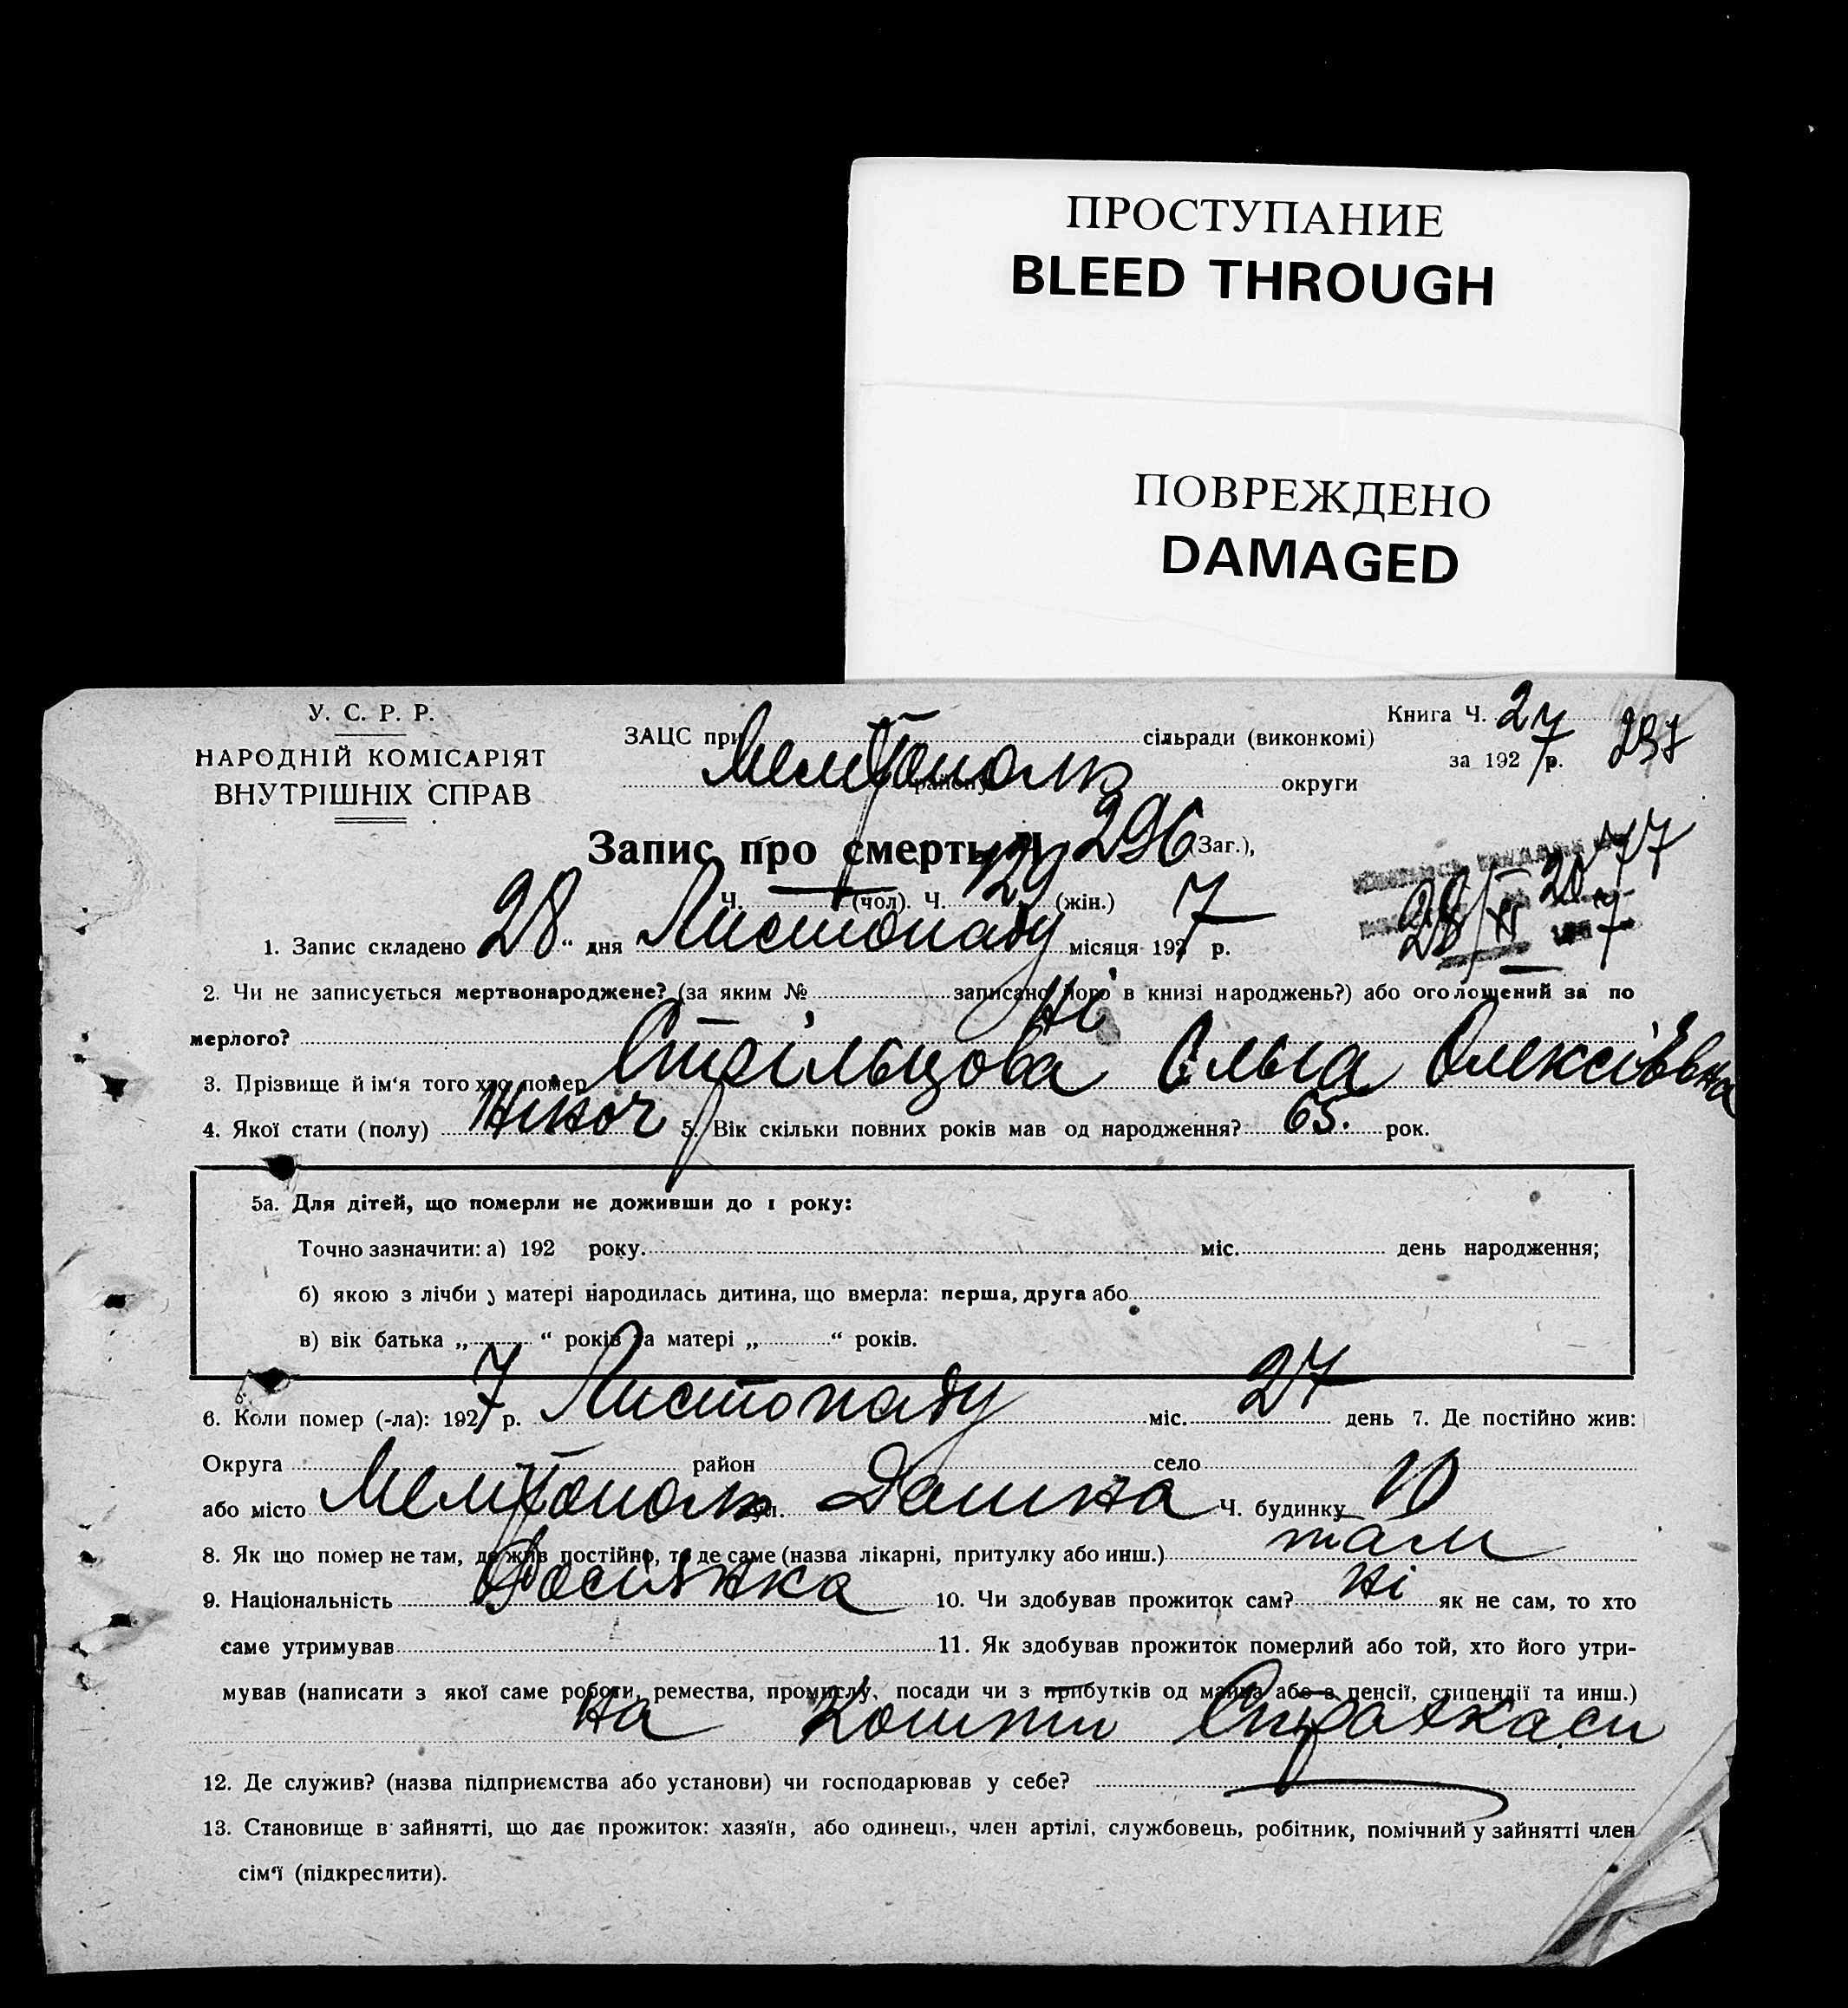 ПРОСТУПАНИЕ
BLEED THROUGH
ПОВРЕЖДЕНО
DAMAGED
У. С. Р. Р.
НАРОДНІЙ КОМІСАРІЯТ
ВНУТРІШНІХ СПРАВ
Книга Ч. 27
ЗАЦС при сільради (виконкомі)
за 1927 р. 297
Мелітополь району округи
Запис про смерть Ч 296 (Заг.),
Ч. (чол). Ч. 129 (жін.)
1. Запис складено 28 " дня Листопаду місяця 1927 р.
28/XI
2. Чи не записується мертвонароджене? (за яким № записано його в книзі народжень?) або оголошений за по
мерлого? Ні
3. Прізвище й ім'я того хто помер Стрільцова Ольга Олексіівна
4. Якої стати (полу) жіноч 5. Вік скільки повних років мав од народження? 65. рок.
5а. Для дітей, що померли не доживши до 1 року:
Точно зазначити: а) 192 року. міс. день народження;
б) якою з лічби у матері народилась дитина, що вмерла: перша, друга або
в) вік батька „ “ років та матері „ “ років.
6. Коли помер (-ла): 1927 р. Листопаду міс. 27 день 7. Де постійно жив:
Округа район село
або місто Мелітополь ул. Ч. будинку 10
8. Як що помер не там, де жив постійно, то де саме (назва лікарні, притулку або инш.) там
9. Національність Росіянка 10. Чи здобував прожиток сам? Ні як не сам, то хто
саме утримував 11. Як здобував прожиток померлий або той, хто його утри-
мував (написати з якої саме роботи, ремества, промислу, посади чи з прибутків од майна або з пенсії, стипендії та инш.)
на кошти Страхкаси
12. Де служив? (назва підприємства або установи) чи господарював у себе?
13. Становище в зайнятті, що дає прожиток: хазяїн, або одинець, член артілі, службовець, робітник, помічний у зайнятті член
сім'ї (підкреслити).